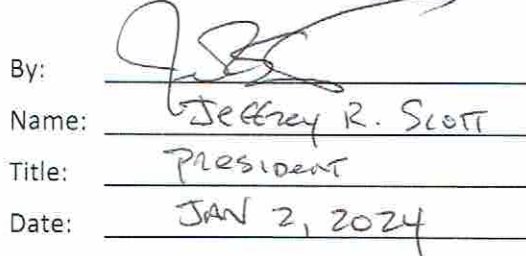 By:
Name: Jeffrey R. Scott
Title: President
Date: JAN 2, 2024